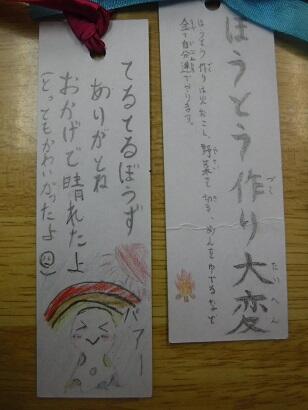 てるてるぼうず
ありがとね
おかげで晴れたよ
(とってもかわいかったよ
パァー
ほうとう作り大変
づく
たいへん
ほうとう作りは火おこし、野菜を切り、めんをゆでるなど
全て自分達でやります。